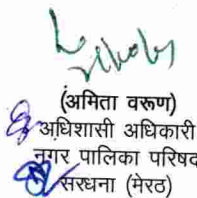 (अमिता वरूण)
अधिशासी अधिकारी
नगर पालिका परिषद
सरधना (मेरठ)